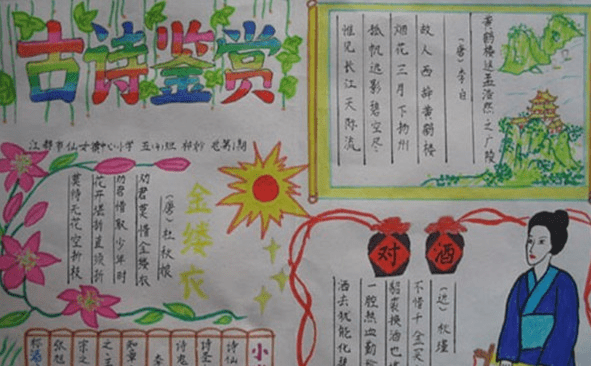 古诗鉴赏
江都市仙女镇中心小学 五(4)班
黄鹤楼送孟浩然之广陵
(唐)李白
故人西辞黄鹤楼
烟花三月下扬州
孤帆远影碧空尽
惟见长江天际流
金缕衣
(唐)杜秋娘
劝君莫惜金缕衣
劝君惜取少年时
花开堪折直须折
莫待无花空折枝
对酒
(近)秋瑾
不惜千金买
貂裘换酒也
一腔热血勤
洒去犹能化碧
小
诗仙
诗圣
诗鬼
知章
之王
宗之
张旭
称酒